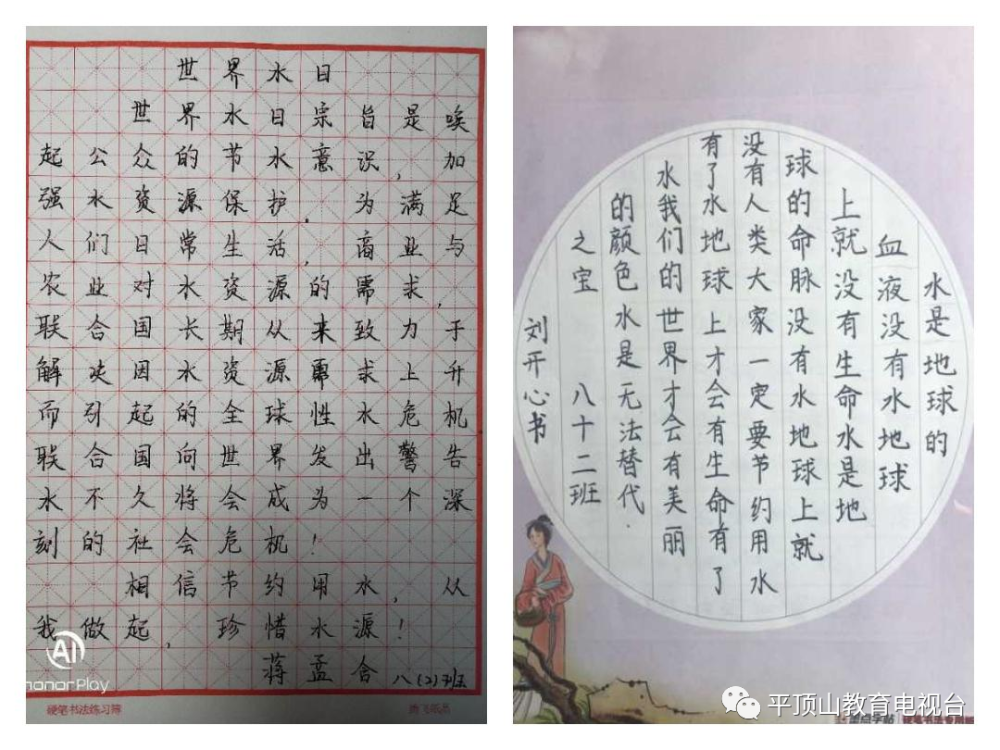 世界水日
世界水日宗旨是唤
起公众的节水意识，加
强水资源保护。为满足
人们日常生活，商业与
农业对水资源的需求，
联合国长期从来致力于
解决因水资源需求上升
而引起的全球性水危机
联合国向世界发出警告
水不久将会成为一个深
刻的社会危机！
相信节约用水，从
我做起，珍惜水源！
蒋孟含 八（2）班
AI
honor Play
硬笔书法练习簿
水是地球的
血液没有水地球
上就没有生命水是地
球的命脉没有水地球上就
没有人类大家一定要节约用水
有了水地球上才会有生命有了
水我们的世界才会有美丽
的颜色水是无法替代
之宝 八十二班
刘开心书
平顶山教育电视台